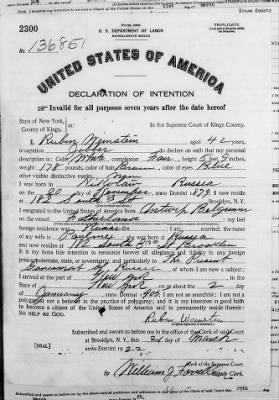 2300
U. S. DEPARTMENT OF LABOR
NATURALIZATION SERVICE
TRIPLICATE
No. 136851
UNITED STATES OF AMERICA
DECLARATION OF INTENTION
Invalid for all purposes seven years after the date hereof
State of New York,
County of Kings,
In the Supreme Court of Kings County.
I, Rubin Weinstein aged 42 years,
occupation do declare on oath that my personal
description is: Color White, complexion Fair, height 5 feet inches,
weight 170 pounds, color of hair Brown, color of eyes Blue
other visible distinctive marks
I was born in Russia
on the 20 day of November, anno Domini 1879; I now reside
at 182 South 3rd St Brooklyn, N.Y.
I emigrated to the United States of America from Antwerp Belgium
on the vessel my last
foreign residence was Russia
wife is Pauline; she was born at Russia
and now resides at So 3rd St Brooklyn
It is my bona fide intention to renounce forever all allegiance and fidelity to any foreign
prince, potentate, state, or sovereignty, and particularly to The Present
Government of Russia, of whom I am now a subject;
I arrived at the port of New York
State of New York on or about the 2 day
of January, anno Domini 1905; I am not an anarchist; I am not a
polygamist nor a believer in the practice of polygamy; and it is my intention in good faith
to become a citizen of the United States of America and to permanently reside therein:
SO HELP ME GOD.
Rubin Weinstein
Subscribed and sworn to before me in the office of the Clerk of said Court
[SEAL] at Brooklyn, N.Y., this 2d day of March
anno Domini 1922
William J.
Clerk of the Supreme Court.
Deputy Clerk.